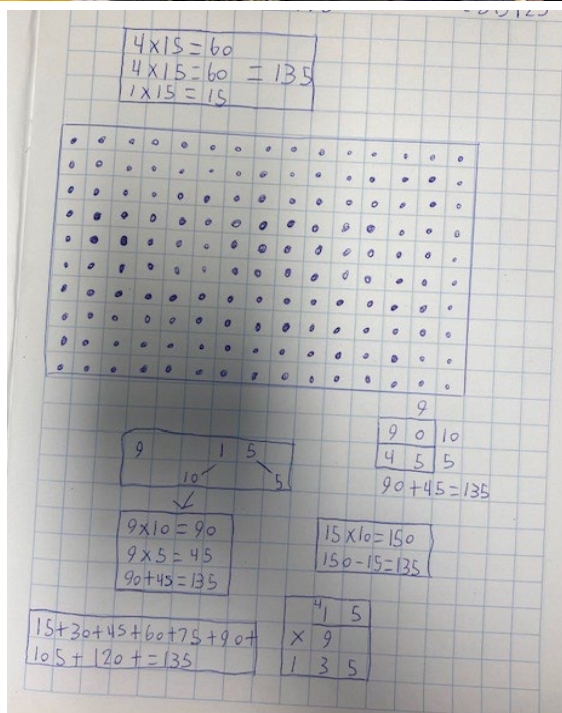 4×15=60
4×15=60 = 135
1×15=15
9
9 0 10
4 5 5
90+45=135
9 1 5
10 5
9×10=90
9×5=45
90+45=135
15×10=150
150-15=135
15+30+45+60+75+90+
105+120+=135
4 1 5
× 9
1 3 5